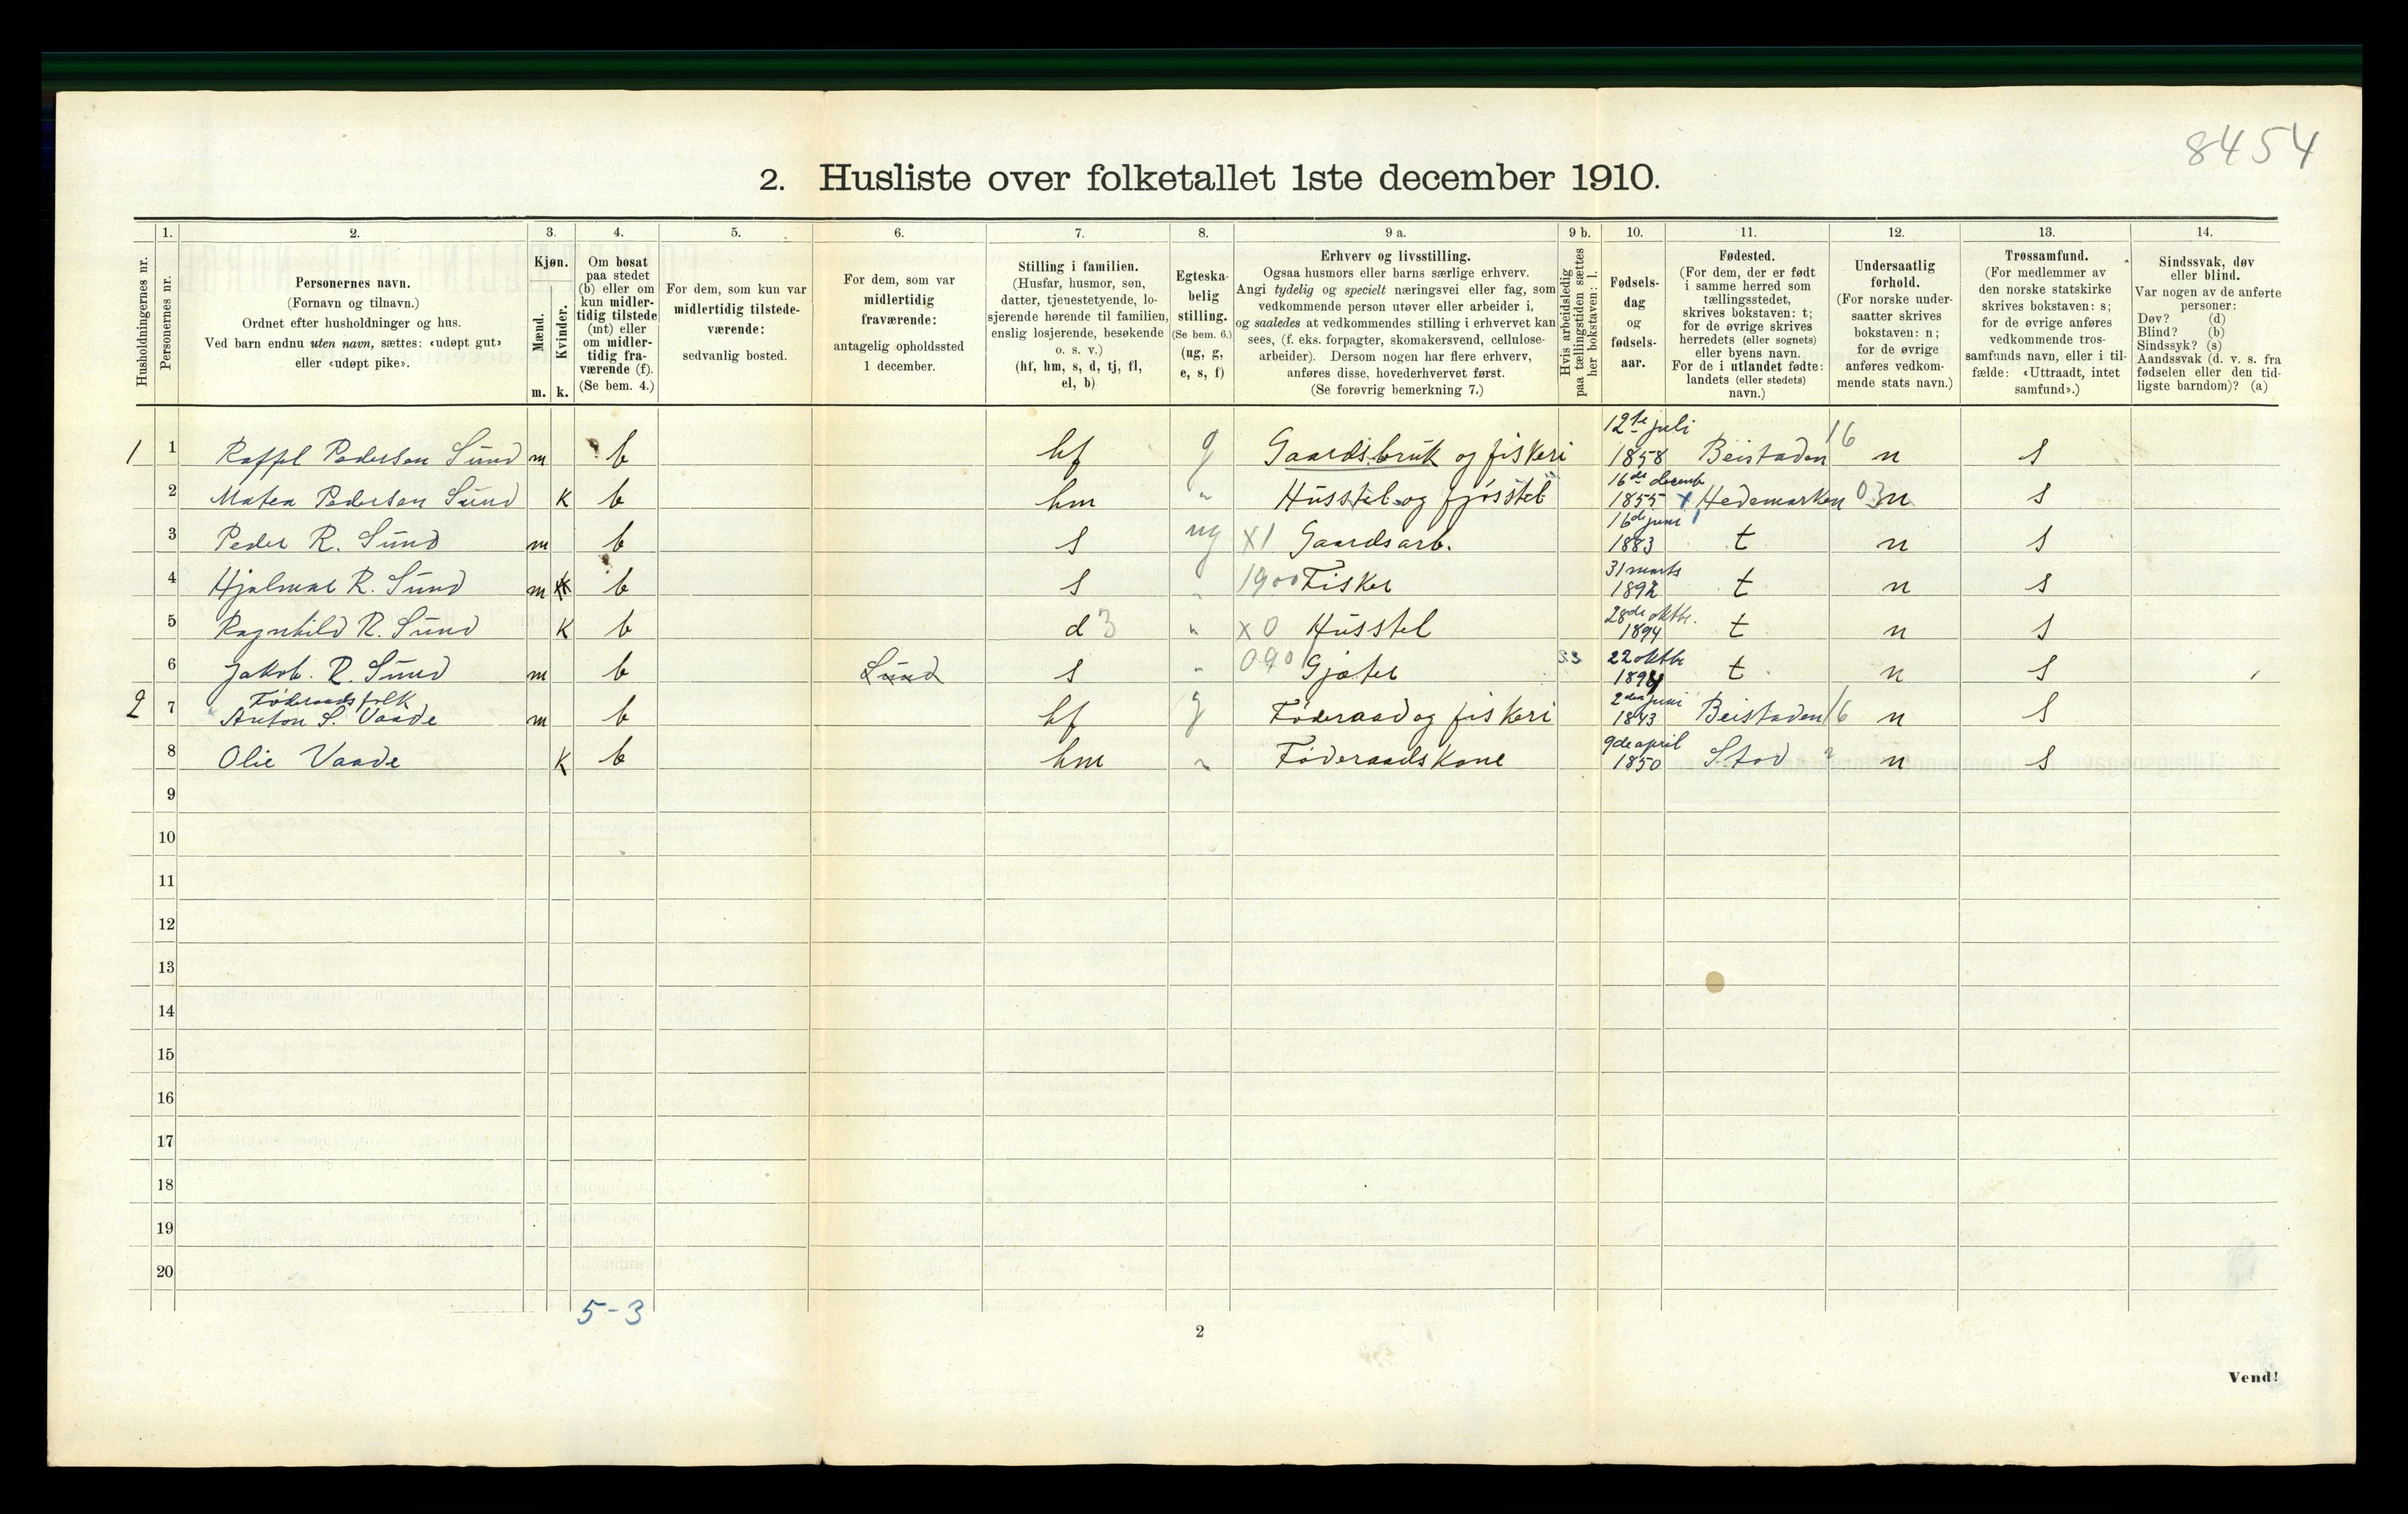 8454
2. Husliste over folketallet 1ste december 1910.
Husholdningernes nr.
1.
Personernes nr.
2.
Personernes navn.
(Fornavn og tilnavn.)
Ordnet efter husholdninger og hus.
Ved barn endnu uten navn, sættes: «udøpt gut»
eller «udøpt pike».
3.
Kjøn.
Mænd.
Kvinder.
m. k.
4.
Om bosat
paa stedet
(b) eller om
kun midler-
tidig tilstede
(mt) eller
om midler-
tidig fra-
værende (f).
(Se bem. 4.)
5.
For dem, som kun var
midlertidig tilstede-
værende:
sedvanlig bosted.
6.
For dem, som var
midlertidig
fraværende:
antagelig opholdssted
1 december.
7.
Stilling i familien.
(Husfar, husmor, søn,
datter, tjenestetyende, lo-
sjerende hørende til familien,
enslig losjerende, besøkende
o. s. v.)
(hf, hm, s, d, tj, fl,
el, b)
8.
Egteska-
belig
stilling.
(Se bem. 6.)
(ug, g,
e, s, f)
9 a.
Erhverv og livsstilling.
Ogsaa husmors eller barns særlige erhverv.
Angi tydelig og specielt næringsvei eller fag, som
vedkommende person utøver eller arbeider i,
og saaledes at vedkommendes stilling i erhvervet kan
sees, (f. eks. forpagter, skomakersvend, cellulose-
arbeider). Dersom nogen har flere erhverv,
anføres disse, hovederhvervet først.
(Se forøvrig bemerkning 7.)
9 b.
Hvis arbeidsledig
paa tællingstiden sættes
her bokstaven: l.
10.
Fødsels-
dag
og
fødsels-
aar.
11.
Fødested.
(For dem, der er født
i samme herred som
tællingsstedet,
skrives bokstaven: t;
for de øvrige skrives
herredets (eller sognets)
eller byens navn.
For de i utlandet fødte:
landets (eller stedets)
navn.)
12.
Undersaatlig
forhold.
(For norske under-
saatter skrives
bokstaven: n;
for de øvrige
anføres vedkom-
mende stats navn.)
13.
Trossamfund.
(For medlemmer av
den norske statskirke
skrives bokstaven: s;
for de øvrige anføres
vedkommende tros-
samfunds navn, eller i til-
fælde: «Uttraadt, intet
samfund».)
14.
Sindssvak, døv
eller blind.
Var nogen av de anførte
personer:
Døv? (d)
Blind? (b)
Sindssyk? (s)
Aandssvak (d. v. s. fra
fødselen eller den tid-
ligste barndom)? (a)
1 1 Pedersen Sund m b hf g Gaardsbruk og fiskeri 12te juli 1858 Beistaden 16 n s
2 Pedersen Sund K b hm " Husstel og fjøsstel 16de decemb 1855 x Hedemarken 03 n s
3 Peder R. Sund m b s ug X1 Gaardsarb. 16de juni 1883 t n s
4 Hjalmar R. Sund m b s " 1900 Fisker 31 marts 1892 t n s
5 Ragnhild R. Sund K b d 3 " X0 Husstel 28de oktbr. 1894 t n s
6 Jakob. R. Sund m b s " 090 Gjæter 22 oktbr t n s
2 7 Føderaadsfolk
Anton S. Vaade m b hf g Føderaad og fiskeri 2den juni 1843 Beistaden 16 n s
8 Olie Vaade K b hm " Føderaadskone 9de april 1850 Stod n s
9
10
11
12
13
14
15
16
17
18
19
20
5-3
2
Vend!